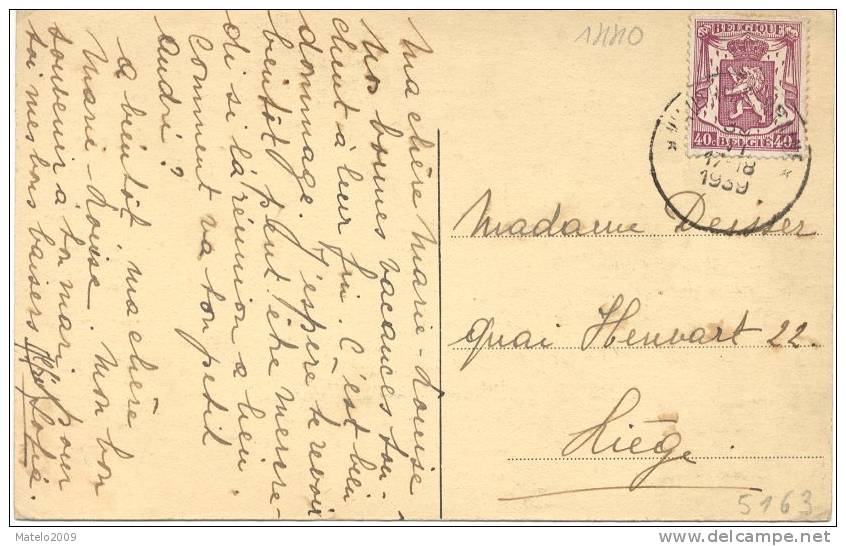 Ma chère Marie-Louise
Nos bonnes vacances tou-
chent à leur fin. C'est bien
dommage. J'espère te revoir
bientôt peut être mercre-
di si la réunion a lieu.
Comment va ton petit
André?
a bientôt, ma chère
Marie-Louise. Mon bon
souvenir à ton mari, pour
toi mes bons baisers
1440
BELGIQUE
40c BELGIE 40c
17-18
1939
Madame Deisser
quai Henvart 22.
Liège.
5163
Matelo2009
www.delcampe.net